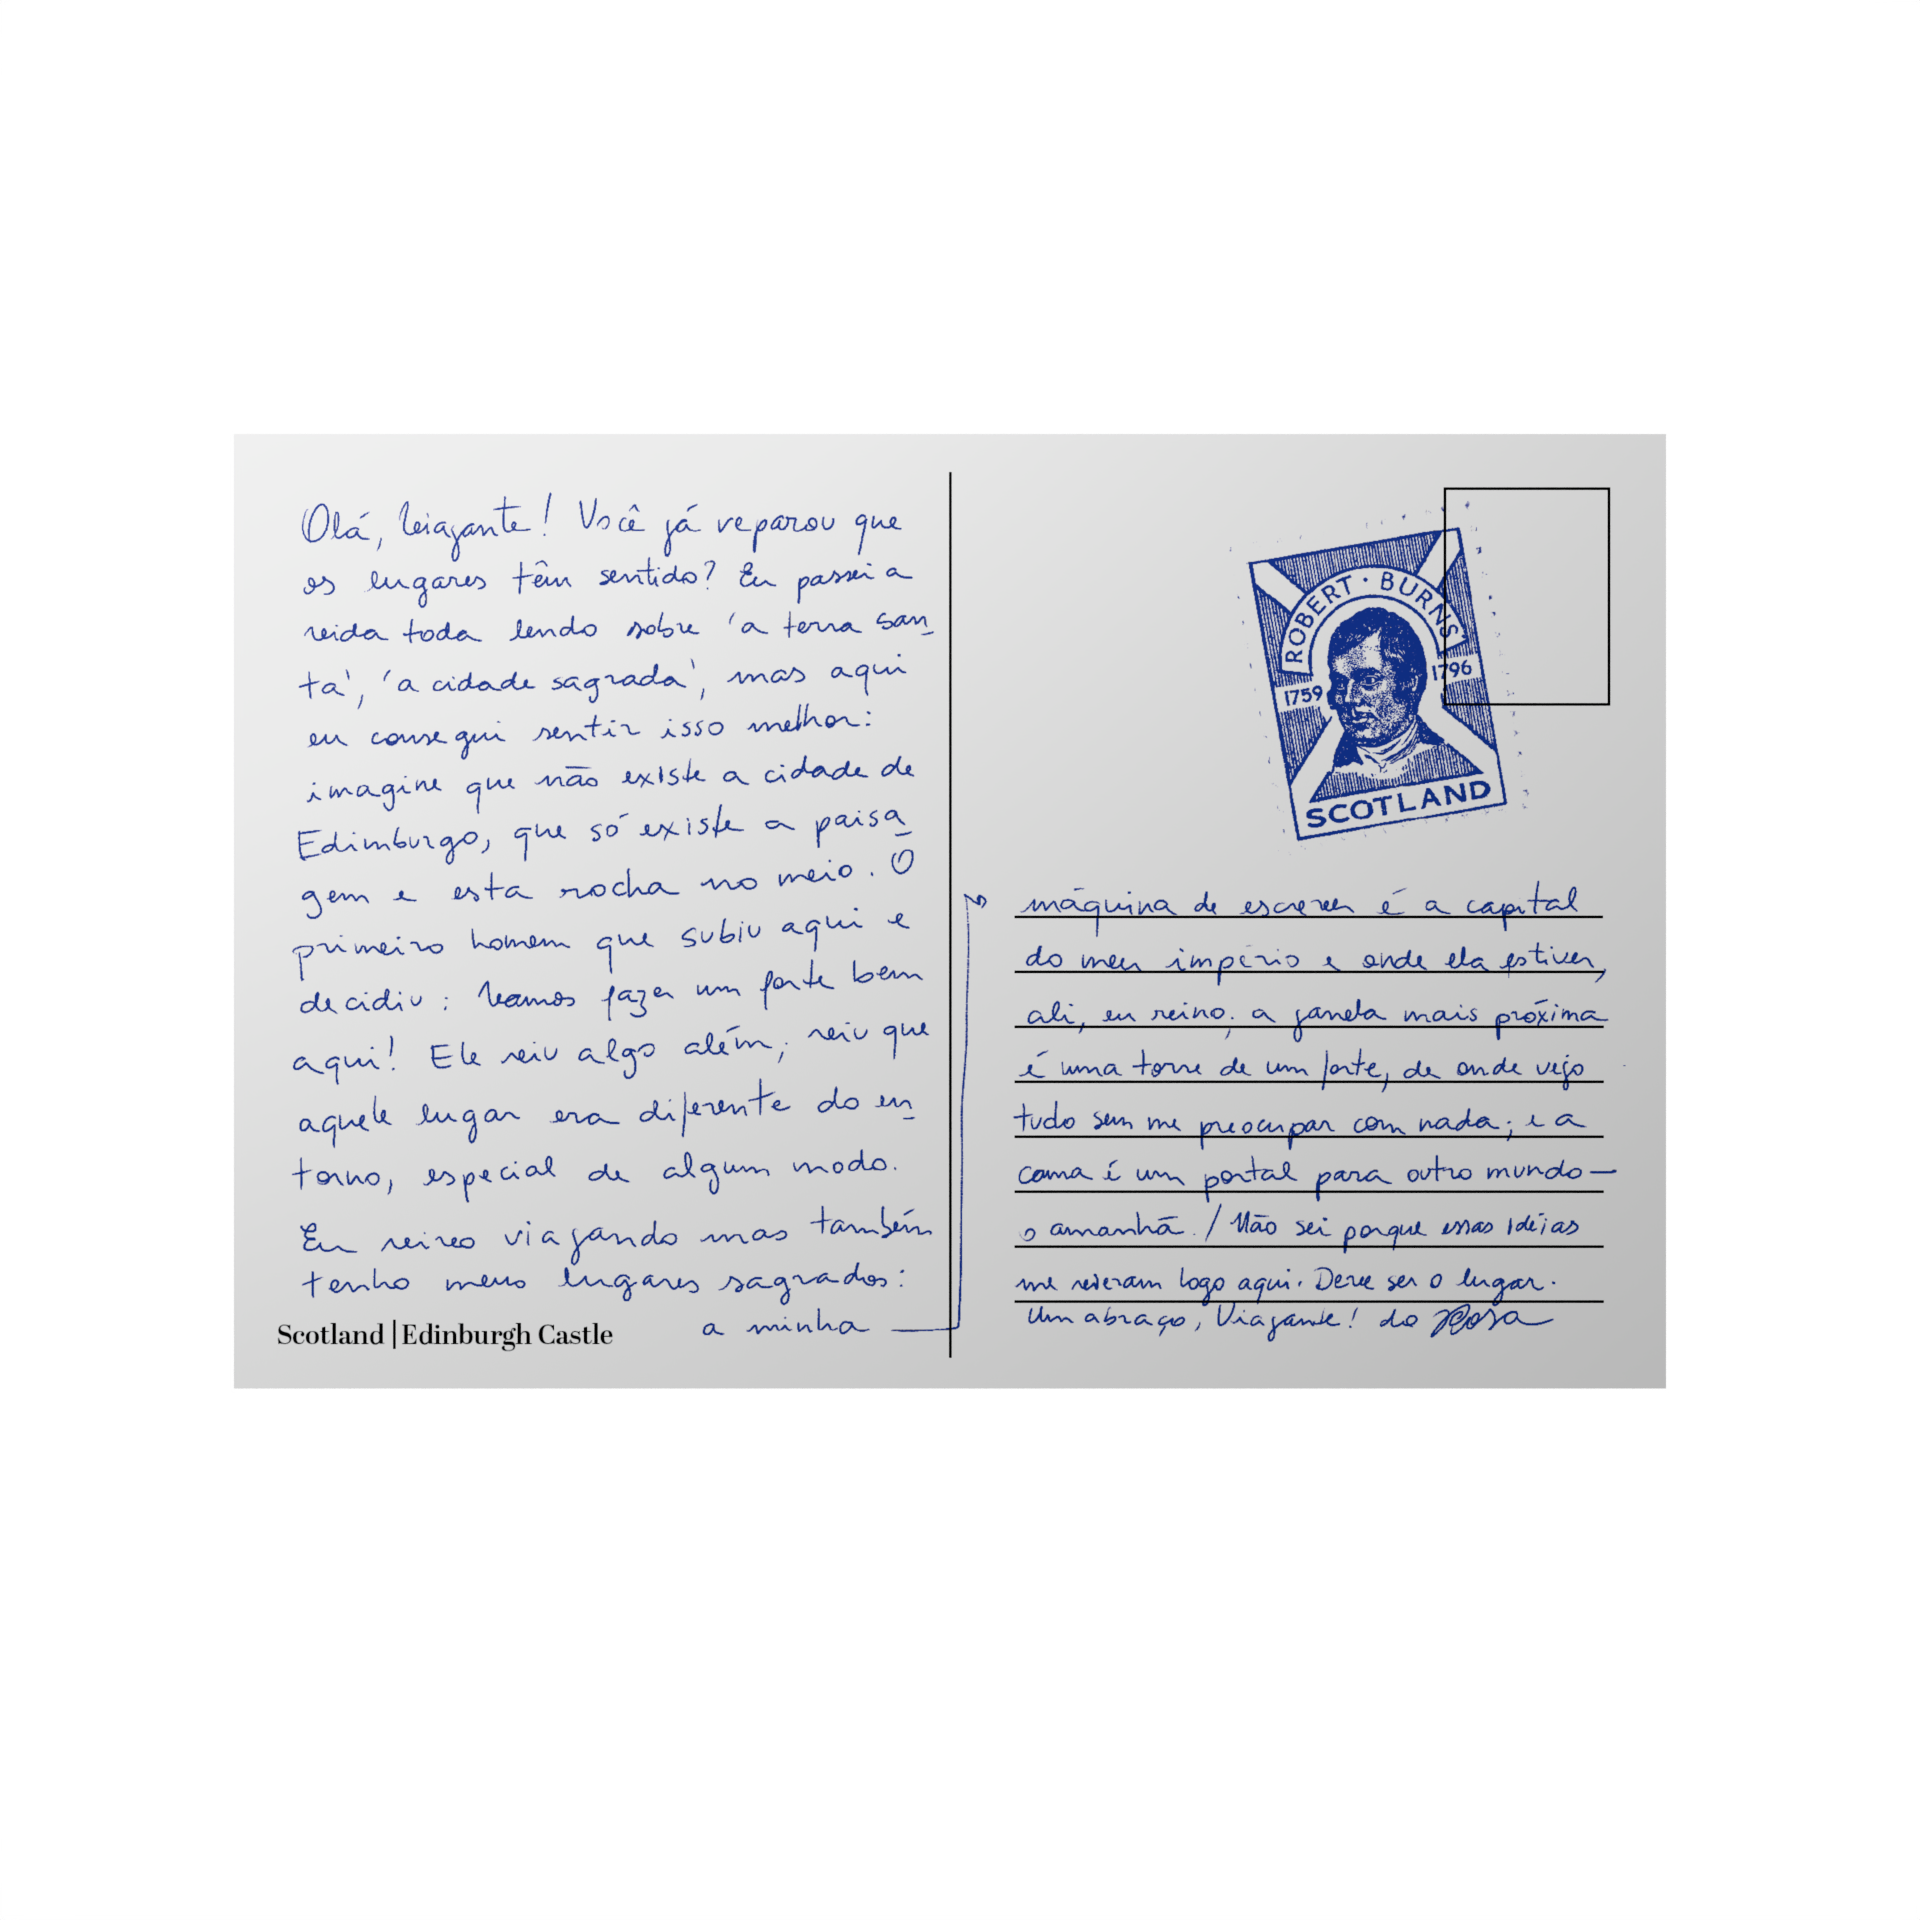 Olá, Viajante! Você já reparou que
os lugares têm sentido? Eu passei a
vida toda lendo sobre 'a terra san_
ta', 'a cidade sagrada', mas aqui
eu consegui sentir isso melhor:
imagine que não existe a cidade de
Edimburgo, que só existe a paisa_
gem e esta rocha no meio. O
primeiro homem que subiu aqui e
decidiu: Vamos fazer um forte bem
aqui! Ele viu algo além; viu que
aquele lugar era diferente do en_
torno, especial de algum modo.
Eu vivo viajando mas também
tenho meus lugares sagrados:
a minha
Scotland | Edinburgh Castle
ROBERT · BURNS
1759 1796
SCOTLAND
máquina de escrever é a capital
do meu império e onde ela estiver,
ali, eu reino; a janela mais próxima
é uma torre de um forte, de onde vejo
tudo sem me preocupar com nada; e a
cama é um portal para outro mundo —
o amanhã. / Não sei porque essas idéias
me vieram logo aqui. Deve ser o lugar.
Um abraço, Viajante! do Rosa